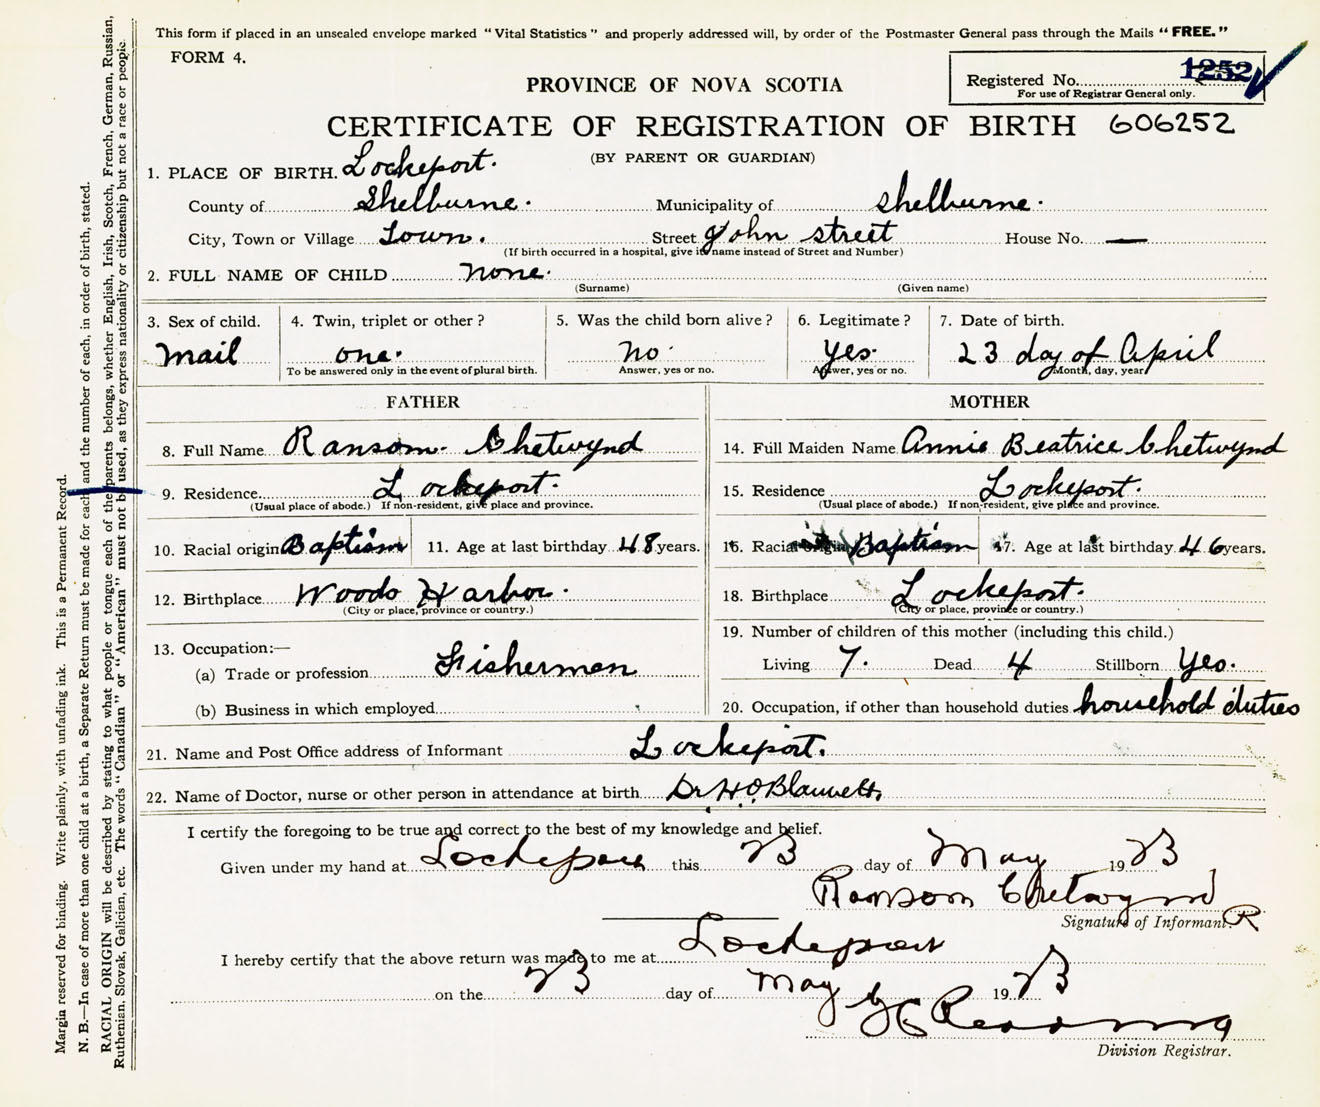 This form if placed in an unsealed envelope marked "Vital Statistics" and properly addressed will, by order of the Postmaster General pass through the Mails "FREE."
FORM 4.
Registered No. 1252
For use of Registrar General only.
PROVINCE OF NOVA SCOTIA
CERTIFICATE OF REGISTRATION OF BIRTH 606252
(BY PARENT OR GUARDIAN)
1. PLACE OF BIRTH. Lockeport.
County of Shelburne. Municipality of Shelburne.
City, Town or Village Town. Street John street House No. —
(If birth occurred in a hospital, give its name instead of Street and Number)
2. FULL NAME OF CHILD none.
(Surname) (Given name)
3. Sex of child. 4. Twin, triplet or other? 5. Was the child born alive? 6. Legitimate? 7. Date of birth.
mail one. no. yes. 23 day of April
To be answered only in the event of plural birth. Answer, yes or no. Answer, yes or no. Month, day, year
FATHER MOTHER
8. Full Name Ransom. Chetwynd 14. Full Maiden Name Annie Beatrice Chetwynd
9. Residence Lockeport. 15. Residence Lockeport.
(Usual place of abode.) If non-resident, give place and province. (Usual place of abode.) If non-resident, give place and province.
10. Racial origin Baptism 11. Age at last birthday 48 years. 16. Racial origin Baptism 17. Age at last birthday 46 years.
12. Birthplace Woods Harbor. 18. Birthplace Lockeport.
(City or place, province or country.) (City or place, province or country.)
13. Occupation:— 19. Number of children of this mother (including this child.)
(a) Trade or profession Fishermen Living 7. Dead 4 Stillborn Yes.
(b) Business in which employed 20. Occupation, if other than household duties household duties
21. Name and Post Office address of Informant Lockeport.
22. Name of Doctor, nurse or other person in attendance at birth Dr. H.O. Blauvelt,
I certify the foregoing to be true and correct to the best of my knowledge and belief.
Given under my hand at Lockeport this 23 day of May 1923
Ransom Chetwynd
Signature of Informant. R
I hereby certify that the above return was made to me at Lockeport
on the 23 day of May 1923
Division Registrar.
Margin reserved for binding. Write plainly, with unfading ink. This is a Permanent Record.
N. B.—In case of more than one child at a birth, a Separate Return must be made for each and the number of each, in order of birth, stated.
RACIAL ORIGIN will be described by stating to what people or tongue each of the parents belongs, whether English, Irish, Scotch, French, German, Russian,
Ruthenian, Slovak, Galician, etc. The words "Canadian" or "American" must not be used, as they express nationality or citizenship but not a race or people.